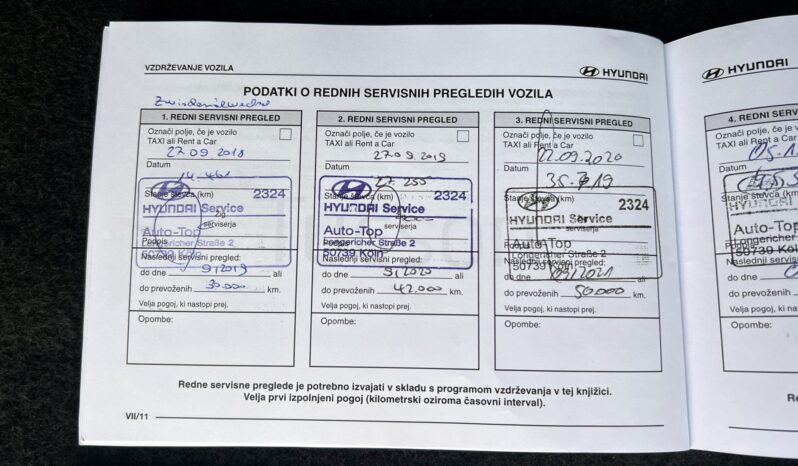 VZDRŽEVANJE VOZILA
HYUNDAI
PODATKI O REDNIH SERVISNIH PREGLEDIH VOZILA
1. REDNI SERVISNI PREGLED
Označi polje, če je vozilo
TAXI ali Rent a Car
27 09 2018
Datum
14.461
Stanje števca (km)
2324
HYUNDAI Service
Žig
serviserja
Auto-Top
Podpis
Longericher Straße 2
50739 Köln
Naslednji servisni pregled:
do dne 9/2019 ali
do prevoženih 30.000 km.
Velja pogoj, ki nastopi prej.
Opombe:
2. REDNI SERVISNI PREGLED
Označi polje, če je vozilo
TAXI ali Rent a Car
27 09. 2019
Datum
27.255
Stanje števca (km)
2324
HYUNDAI Service
serviserja
Auto-Top
Podpis
Longericher Straße 2
50739 Köln
Naslednji servisni pregled:
do dne 9/2020 ali
do prevoženih 42.000 km.
Velja pogoj, ki nastopi prej.
Opombe:
3. REDNI SERVISNI PREGLED
Označi polje, če je vozilo
TAXI ali Rent a Car
22.09.2020
Datum
35.719
Stanje števca (km)
2324
HYUNDAI Service
serviserja
Auto-Top
Podpis
Longericher Straße 2
50739 Köln
Naslednji servisni pregled:
do dne 09/2021 ali
do prevoženih 50.000 km.
Velja pogoj, ki nastopi prej.
Opombe:
Redne servisne preglede je potrebno izvajati v skladu s programom vzdrževanja v tej knjižici.
Velja prvi izpolnjeni pogoj (kilometrski oziroma časovni interval).
VII/11
HYUNDAI
4. REDNI
Označi polje, če
TAXI ali Rent a
Datum
Stanje števca
HYUNDAI
Auto-Top
Podpis
Longericher
50739 Köln
Naslednji servisni
do dne
do prevoženih
Velja pogoj, ki
Opombe: